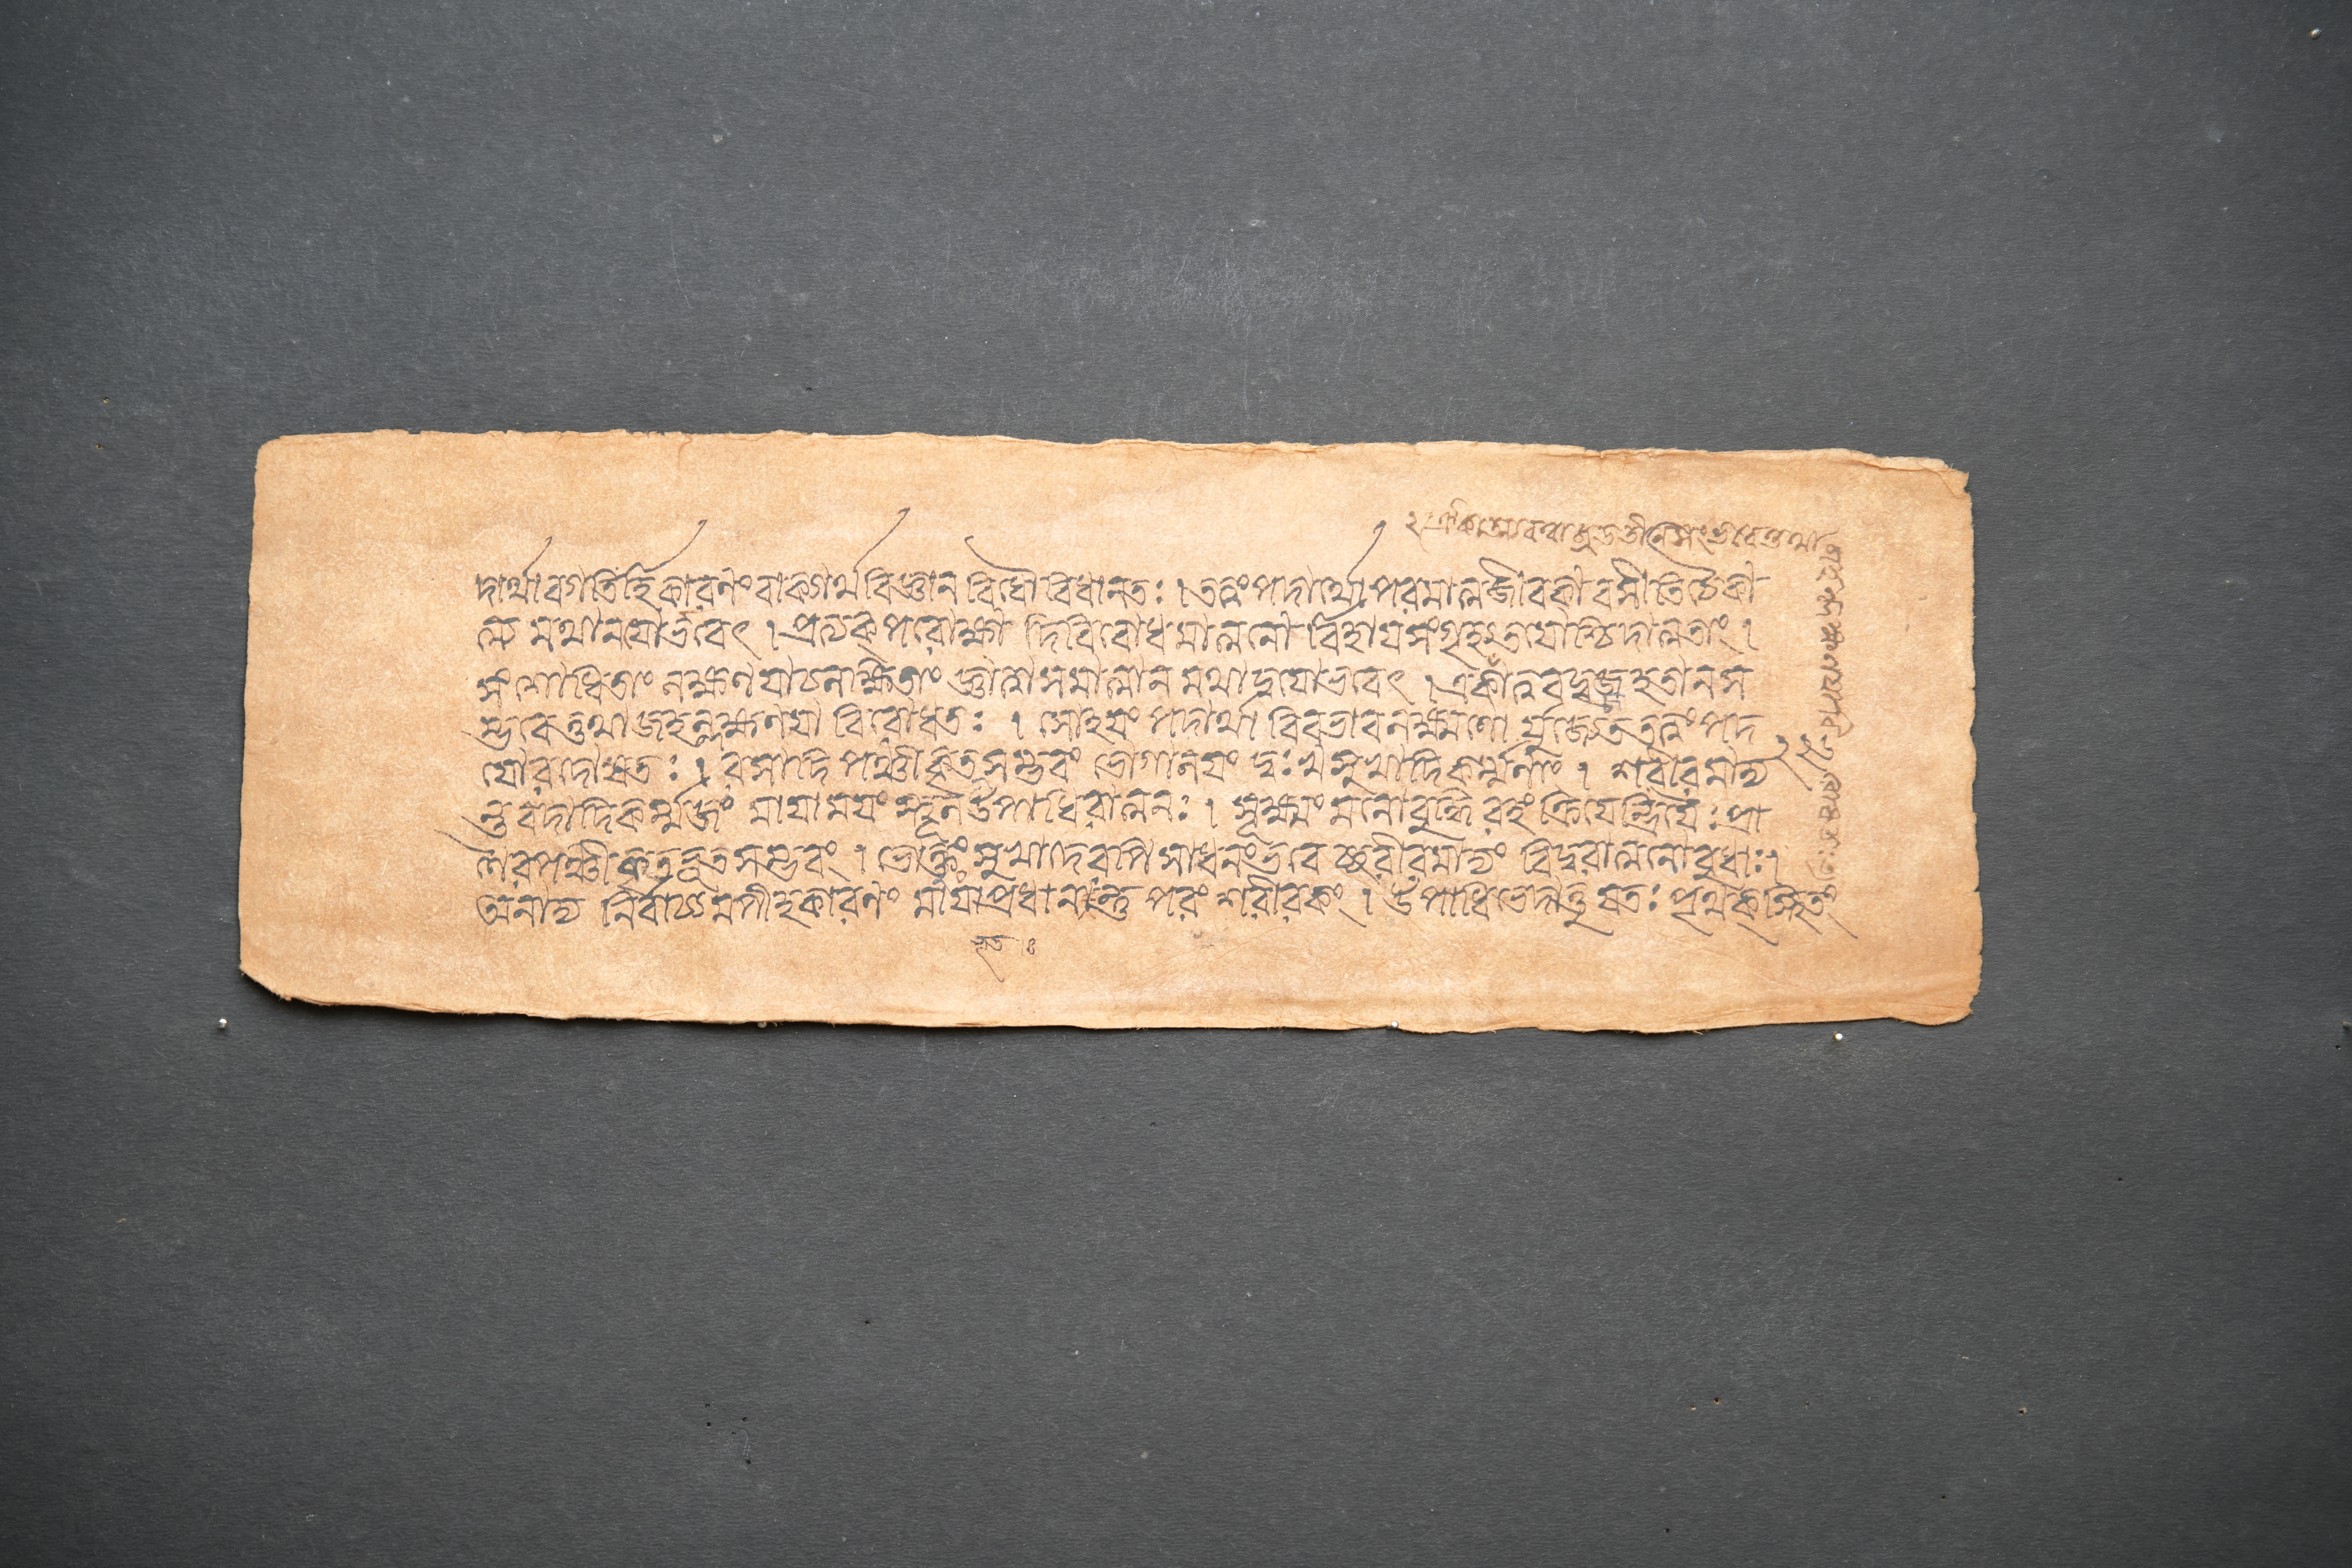 দার্থাবগতির্হি কারণং বাক্যার্থবিজ্ঞানবিধৌ বিধানতঃ । তত্ত্বংপদার্থৌ পরমাত্মজীবকাবসীতি চৈকা
ত্ম্যমথানয়োর্ভবেৎ । প্রত্যক্ পরোক্ষাদিবিরোধমাত্মনোর্বিহায় সংগৃহ্য তয়োশ্চিদাত্মতাং ।
সংশোধিতাং লক্ষণয়া চ লক্ষিতাং জ্ঞাত্বা স্বমাত্মানমথাদ্বয়ো ভবেৎ । একাত্মকত্বাজ্জহতী ন স
ম্ভবেত্তথাজহল্লক্ষণয়া বিরোধতঃ । সোঽয়ং পদার্থাবিব ভাগলক্ষণা যুজ্যেত তত্ত্বংপদ
য়োরদোষতঃ । রসাদিপঞ্চীকৃতসম্ভবং ভোগালয়ং দুঃখসুখাদিকর্ম্মণাং । শরীরমাদ্য
ন্তবদাদিকর্ম্মজং মায়াময়ং স্থূলউপাধিরাত্মনঃ । সূক্ষ্মং মনোবুদ্ধিরহংক্রিয়েন্দ্রিয়ৈঃ প্রা
ণৈরপঞ্চীকৃতভূতসম্ভবং । ভোক্তুঃ সুখাদেরপি সাধনং ভবেচ্ছরীরমাদ্যং বিদুরাত্মনো বুধাঃ ।
অনাদ্যনির্বাচ্যমপীহ কারণং মায়াপ্রধানন্তু পরং শরীরকং । উপাধিভেদাত্তু যতঃ পৃথক্স্থিতং